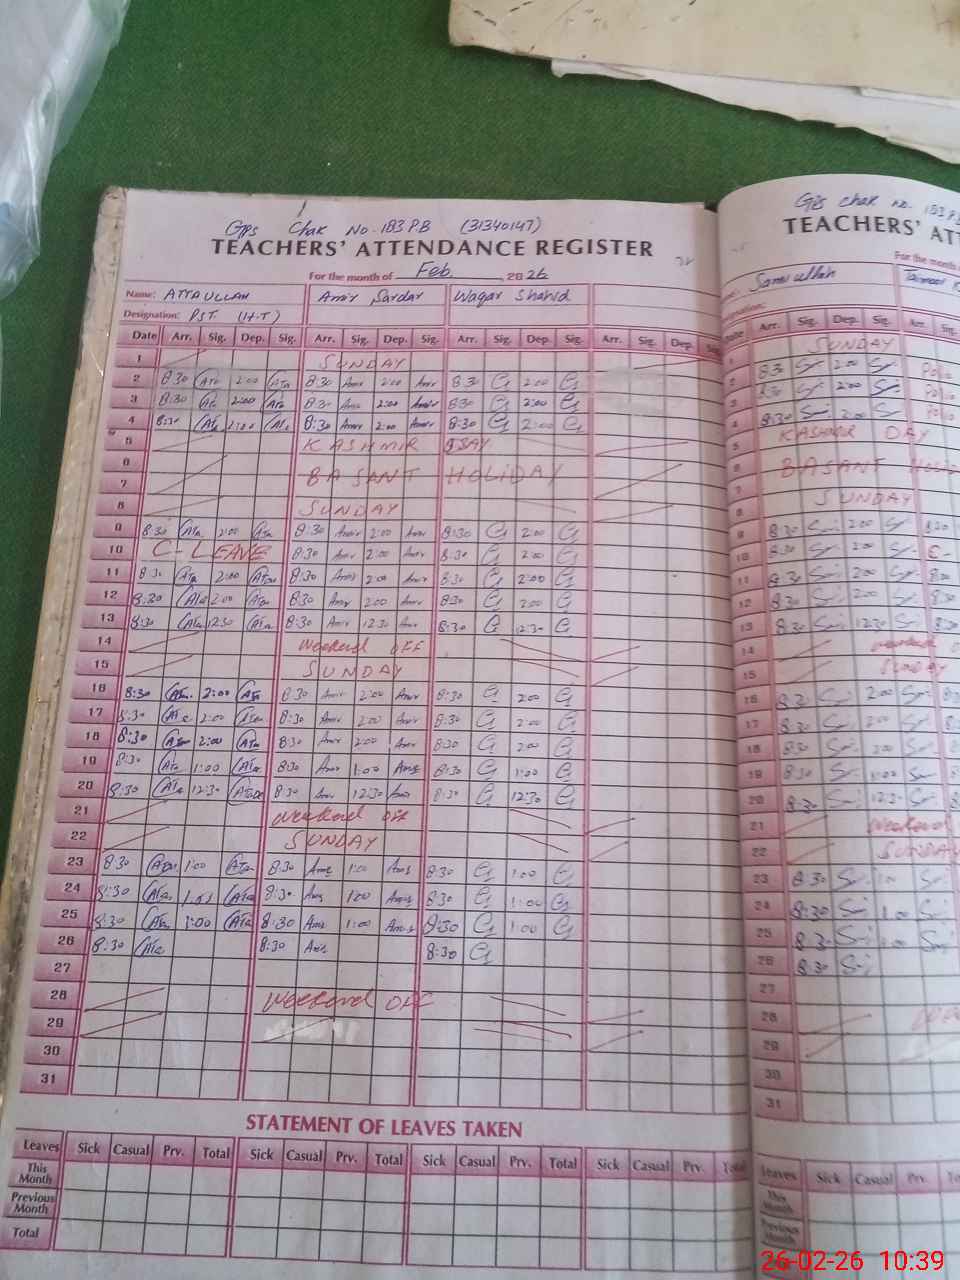 GPS Chak No. 183 P.B (31340147)
TEACHERS' ATTENDANCE REGISTER
For the month of Feb. 2026
Name: ATTAULLAH Amir Sardar Waqar Shahid
Designation: PST (H.T)
Date Arr. Sig. Dep. Sig. Arr. Sig. Dep. Sig. Arr. Sig. Dep. Sig. Arr. Sig. Dep. Sig.
1 SUNDAY
2 8:30 Ata 2:00 Ata 8:30 Amir 2:00 Amir 8:30 2:00
3 8:30 Ata 2:00 Ata 8:30 Amir 2:00 Amir 8:30 2:00
4 8:30 Ata 2:00 Ata 8:30 Amir 2:00 Amir 8:30 2:00
5 KASHMIR DAY
6 BASANT HOLIDAY
7
8 SUNDAY
9 8:30 Ata 2:00 Ata 8:30 Amir 2:00 Amir 8:30 2:00
10 C-LEAVE 8:30 Amir 2:00 Amir 8:30 2:00
11 8:30 Ata 2:00 Ata 8:30 Amir 2:00 Amir 8:30 2:00
12 8:30 Ata 2:00 Ata 8:30 Amir 2:00 Amir 8:30 2:00
13 8:30 Ata 12:30 Ata 8:30 Amir 12:30 Amir 8:30 12:30
14 Weekend OFF
15 SUNDAY
16 8:30 Ata 2:00 Ata 8:30 Amir 2:00 Amir 8:30 2:00
17 8:30 Ata 2:00 Ata 8:30 Amir 2:00 Amir 8:30 2:00
18 8:30 Ata 2:00 Ata 8:30 Amir 2:00 Amir 8:30 2:00
19 8:30 Ata 1:00 Ata 8:30 Amir 1:00 Amir 8:30 1:00
20 8:30 Ata 12:30 Ata 8:30 Amir 12:30 Amir 8:30 12:30
21 Weekend off
22 SUNDAY
23 8:30 Ata 1:00 Ata 8:30 Amir 1:00 Amir 8:30 1:00
24 8:30 Ata 1:00 Ata 8:30 Amir 1:00 Amir 8:30 1:00
25 8:30 Ata 1:00 Ata 8:30 Amir 1:00 Amir 8:30 1:00
26 8:30 Ata 8:30 Amir 8:30
27
28 Weekend OFF
29
30
31
STATEMENT OF LEAVES TAKEN
Leaves Sick Casual Prv. Total Sick Casual Prv. Total Sick Casual Prv. Total Sick Casual Prv.
This Month
Previous Month
Total
GPS Chak No.
TEACHERS'
For the month
Sami ullah
Arr. Sig. Dep. Sig. Arr.
1 SUNDAY
2 8:30 2:00 Polio
3 8:30 2:00 Polio
4 8:30 2:00 Polio
5 KASHMIR DAY
6 BASANT
7
8 SUNDAY
9 8:30 2:00 8:30
10 8:30 2:00
11 8:30 2:00 8:30
12 8:30 2:00 8:30
13 8:30 12:30 8:30
14 weekend
15 SUNDAY
16 8:30 2:00
17 8:30 2:00
18 8:30 2:00
19 8:30 1:00
20 8:30 12:30
21 weekend
22 SUNDAY
23 8:30 1:00
24 8:30 1:00
25 8:30 1:00
26 8:30
27
28
29
30
31
Leaves Sick Casual Prv.
This Month
Previous Month
Total
26-02-26 10:39